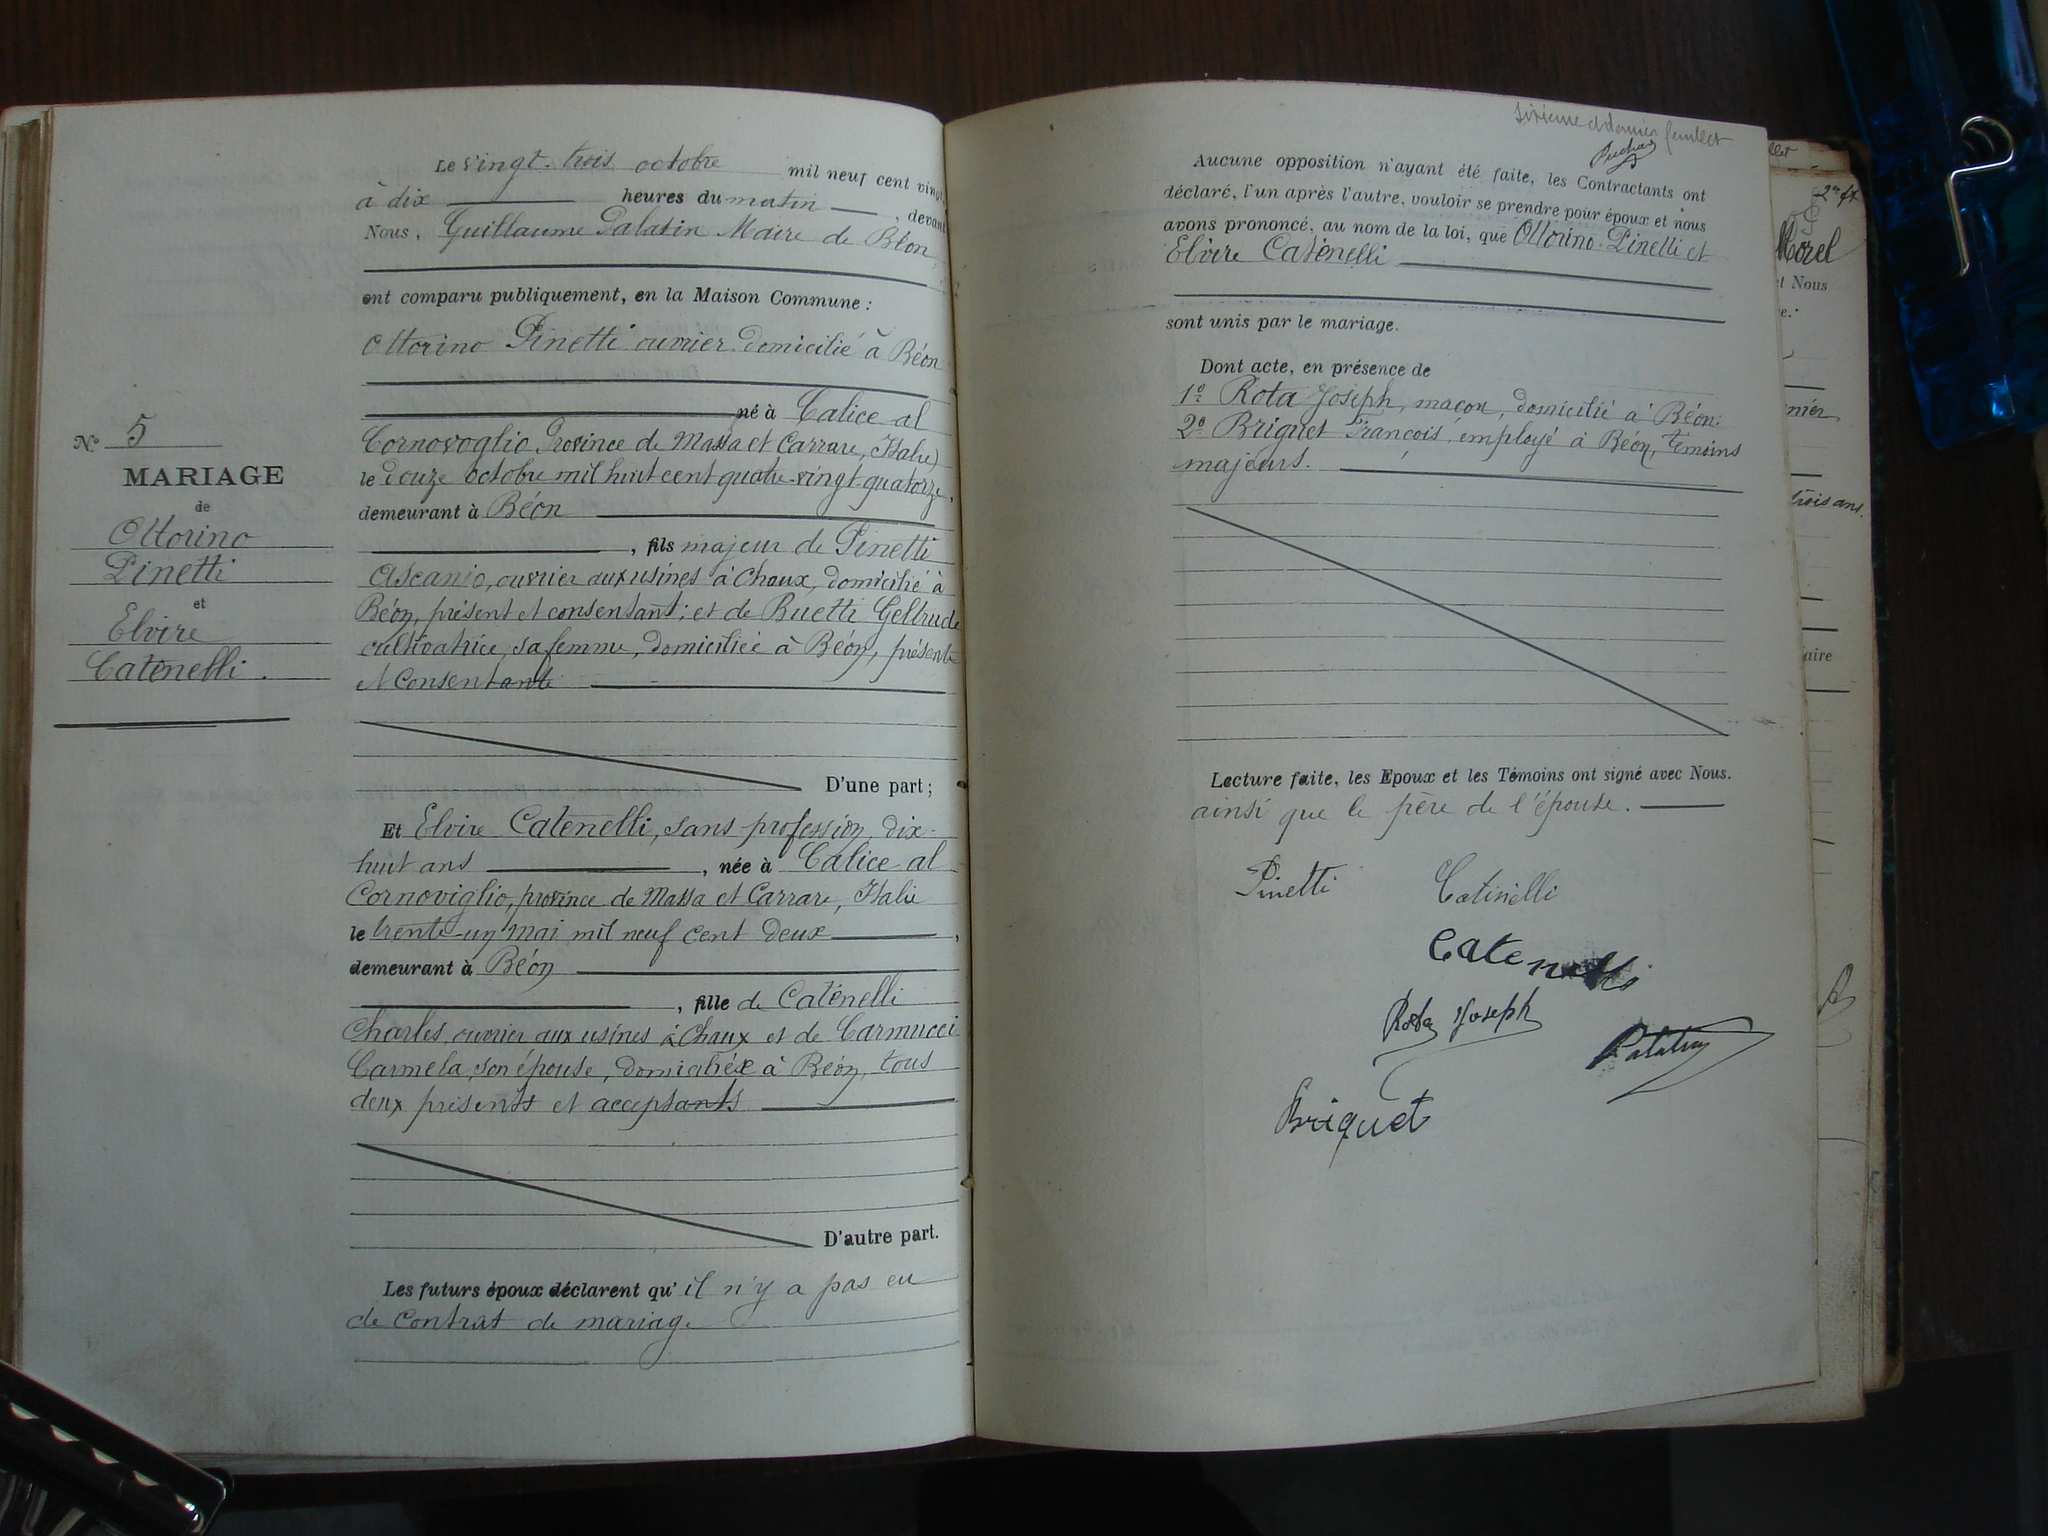 Le vingt-trois octobre mil neuf cent vingt
à dix heures du matin, devant
Nous, Guillaume Palatin Maire de Béon
ent comparu publiquement, en la Maison Commune :
Ottorino Pinetti ouvrier domicilié à Béon
né à Calice al
Cornovoglio Province de Massa et Carrare, Italie)
le douze octobre mil huit cent quatre-vingt-quatorze,
demeurant à Béon
, fils majeur de Pinetti
Ascanio, ouvrier aux usines à Chaux, domicilié à
Béon, présent et consentant; et de Buetti Geltrude
cultivatrice, sa femme, domiciliée à Béon, présente
et consentante
D'une part ;
Et Elvire Catènelli, sans profession, dix-
huit ans, née à Calice al
Cornoviglio, province de Massa et Carrare, Italie
le trente-un mai mil neuf cent deux,
demeurant à Béon
, fille de Catènelli
Charles, ouvrier aux usines à Chaux et de Carmucci
Carmela, son épouse, domiciliés à Béon, tous
deux présents et acceptants
D'autre part.
Les futurs époux déclarent qu'il n'y a pas eu
de contrat de mariage
No 5
MARIAGE
de
Ottorino
Pinetti
et
Elvire
Catènelli.
Sixième et dernier feuillet
Aucune opposition n'ayant été faite, les Contractants ont
déclaré, l'un après l'autre, vouloir se prendre pour époux et nous
avons prononcé, au nom de la loi, que Ottorino Pinelli et
Elvire Catènelli
sont unis par le mariage.
Dont acte, en présence de
1º Rota Joseph, maçon, domicilié à Béon.
2º Briquet François, employé à Béon, témoins
majeurs.
Lecture faite, les Epoux et les Témoins ont signé avec Nous.
ainsi que le père de l'épouse.
Pinetti Catinelli
Catenelli
Rota Joseph
Palatin
Briquet
2me ft
Morel
et Nous
e :
nier
trois ans.
aire